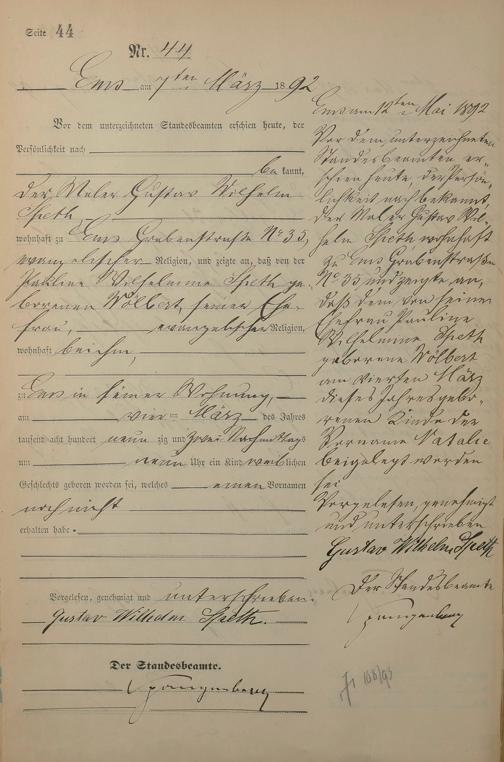 Seite 44
Nr. 44
Ems am 7ten März 1892
Vor dem unterzeichneten Standesbeamten erschien heute, der
Persönlichkeit nach
bekannt,
der Maler Gustav Wilhelm
Speth,
wohnhaft zu Ems Grabenstraße No 35,
evangelischer Religion, und zeigte an, daß von der
Pauline Wilhelmine Speth ge-
borenen Wölbert, seiner Ehe-
frau, evangelischer Religion,
wohnhaft bei ihm,
zu Ems in seiner Wohnung,
am vier= März des Jahres
tausend acht hundert neun zig und zwei Nachmittags
um neun Uhr ein Kind weiblichen
Geschlechts geboren worden sei, welches einen Vornamen
noch nicht
erhalten habe.
Vorgelesen, genehmigt und unterschrieben.
Gustav Wilhelm Speth.
Der Standesbeamte.
Spangenberg
Ems am 12ten Mai 1892
Vor dem unterzeichneten
Standesbeamten er-
schien heute, der Persön-
lichkeit nach bekannt,
der Maler Gustav Wil-
helm Speth wohnhaft
zu Ems Grabenstraße
No 35 und zeigte an,
daß dem von seiner
Ehefrau Pauline
Wilhelmine Speth
geborene Wölbert
am vierten März
dieses Jahres gebo-
renen Kinde der
Vorname Natalie
beigelegt worden
sei
Vorgelesen, genehmigt
und unterschrieben
Gustav Wilhelm Speth
Der Standesbeamte
Spangenberg